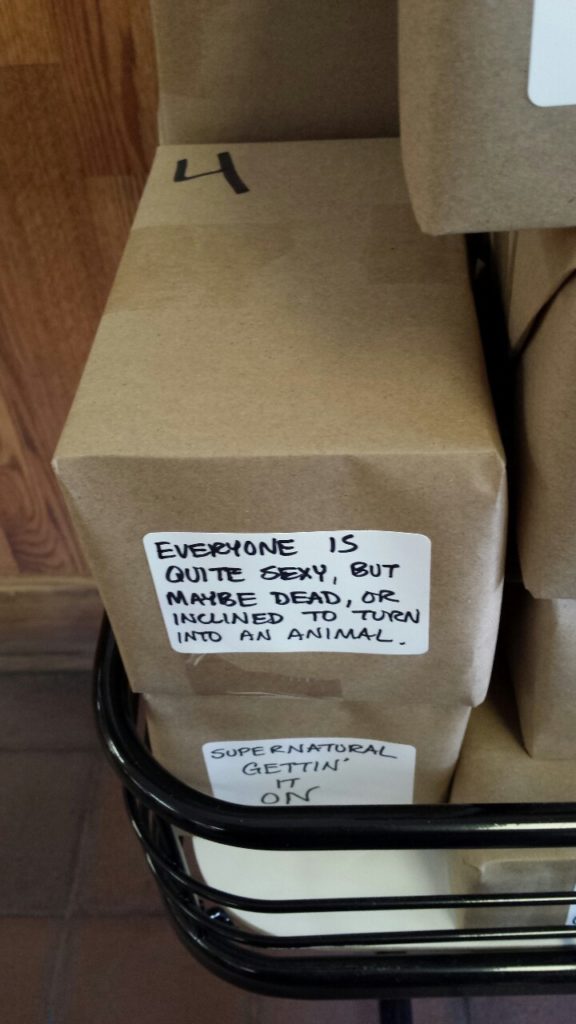 4
EVERYONE IS
QUITE SEXY, BUT
MAYBE DEAD, OR
INCLINED TO TURN
INTO AN ANIMAL.
SUPERNATURAL
GETTIN'
IT
ON